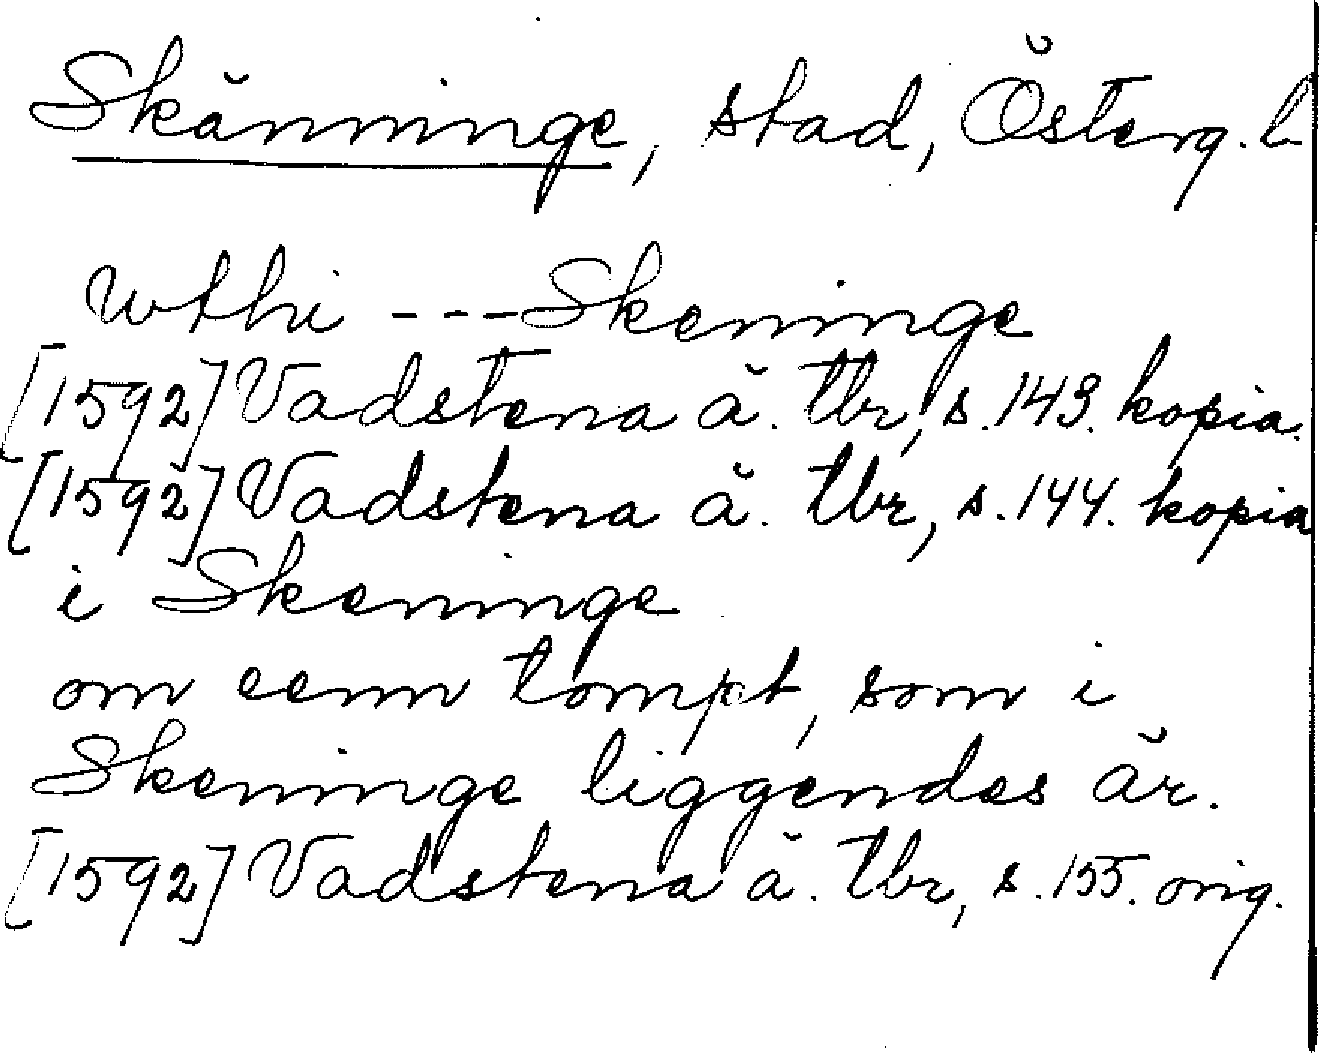 Skänninge, stad, Österg. l
wthi --- Skeninge
[1592] Vadstena ä. tbr, s. 143. kopia.
[1592] Vadstena ä. tbr, s. 144. kopia
i Skeninge
om eenn tompt, som i
Skeninge liggendes är.
[1592] Vadstena ä. tbr, s. 155. orig.